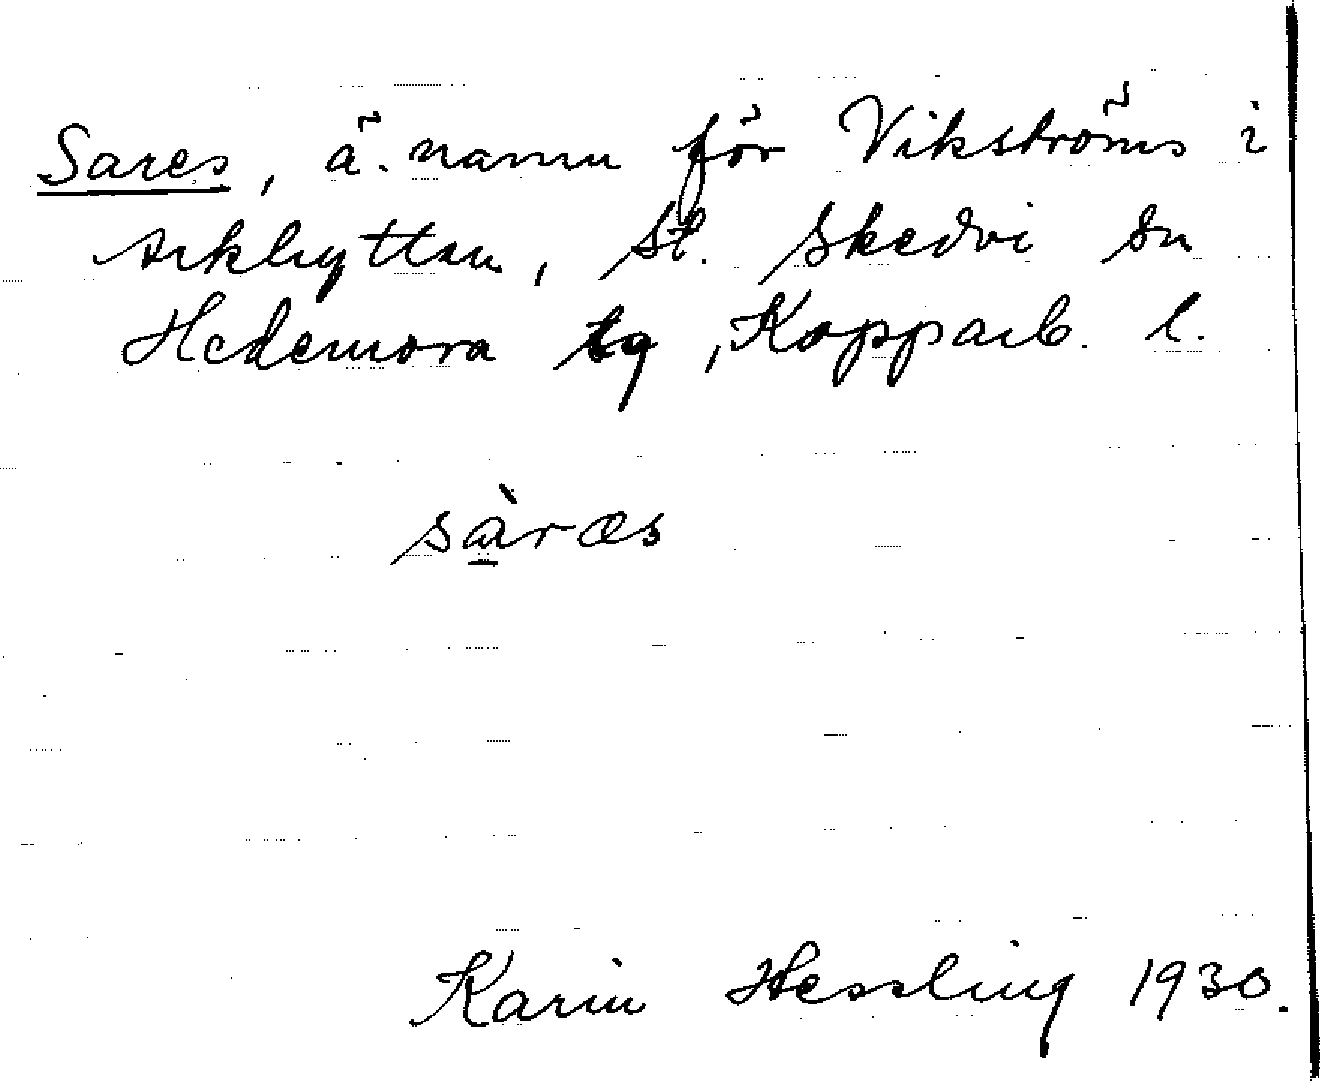 Sares, ä. namn för Vikströms i
Arkhyttan, St. Skedvi sn
Hedemora tg, Kopparb. l.
sàræs
Karin Hessling 1930.